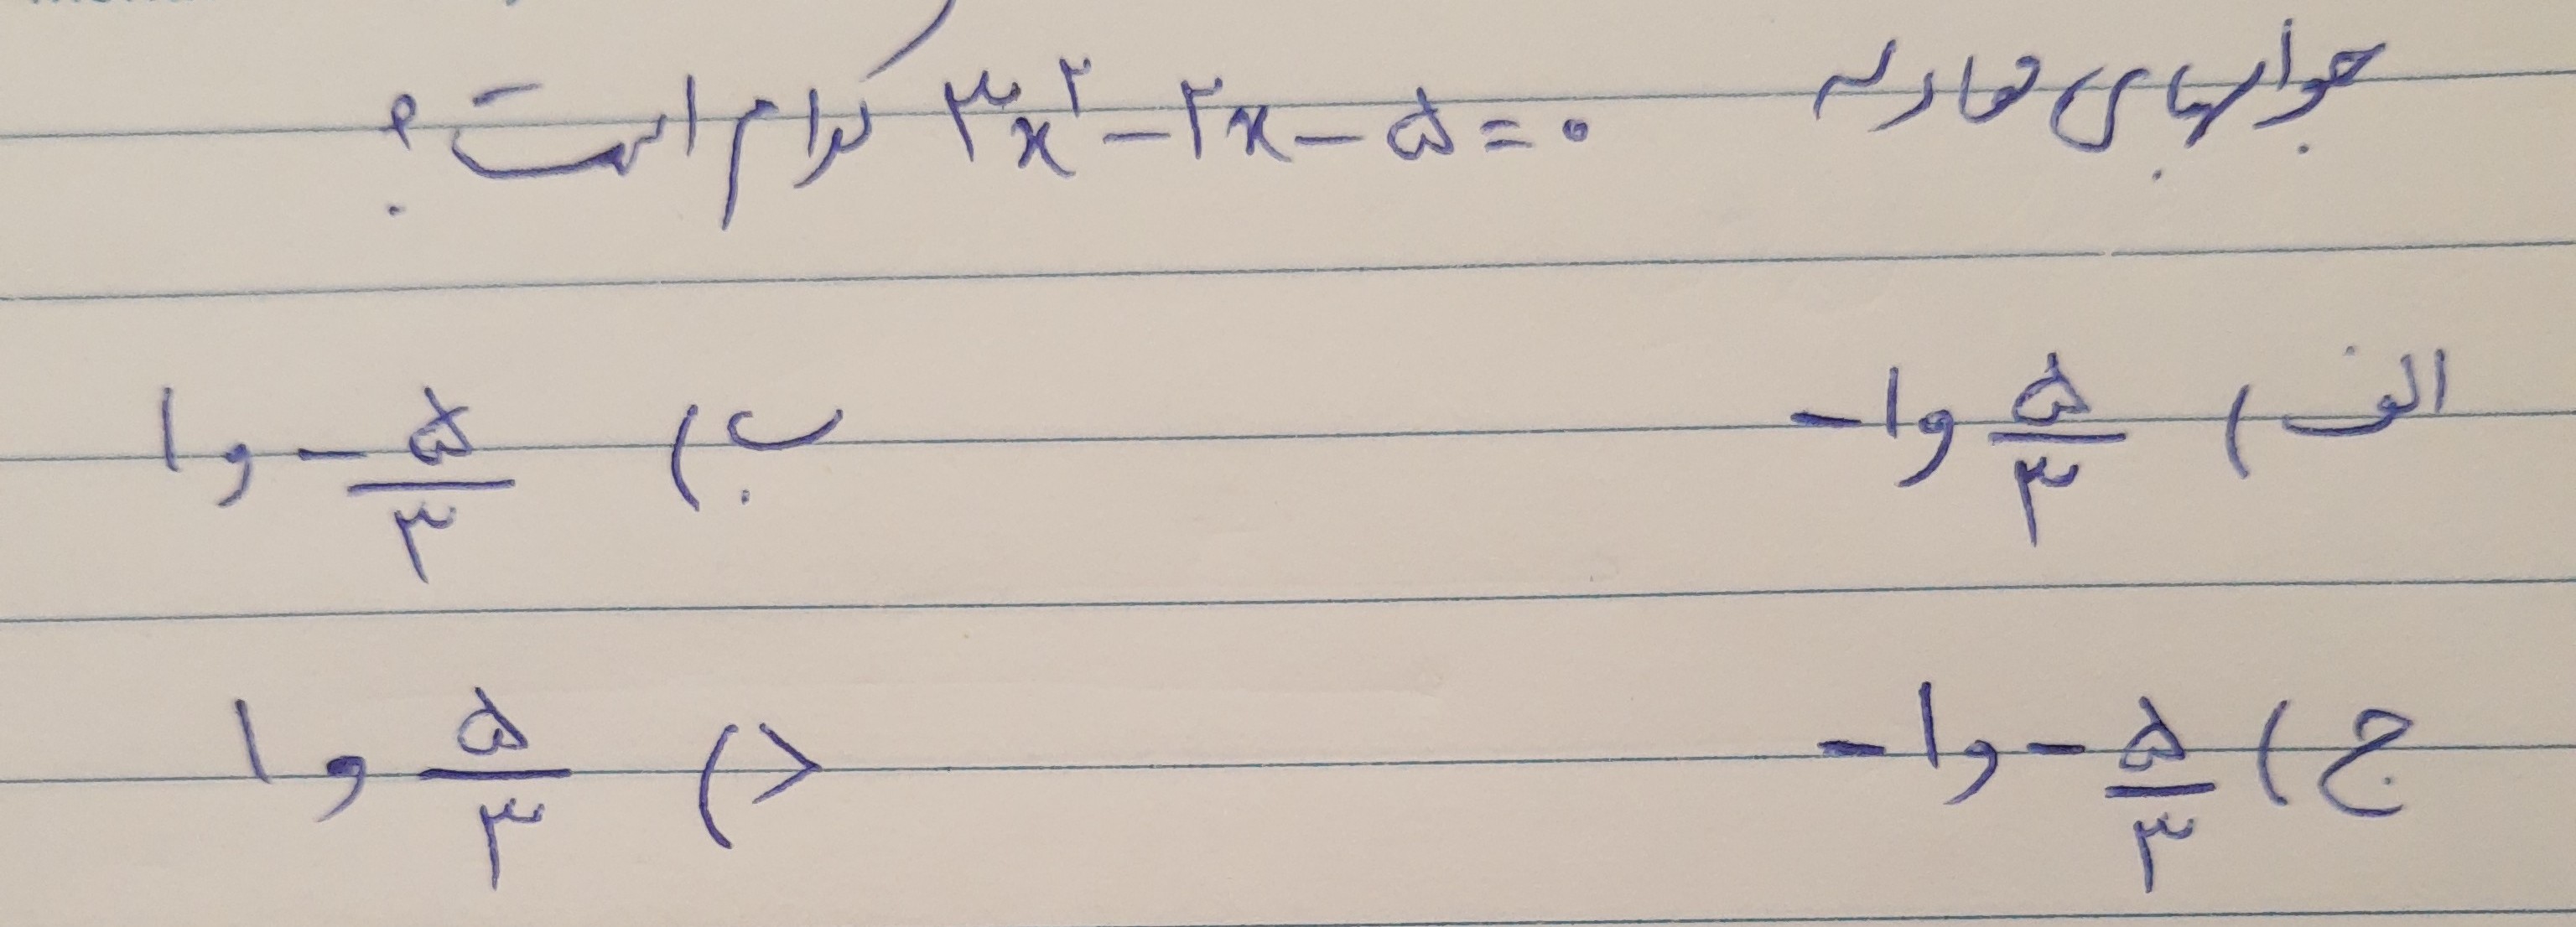 جوابهای معادله ۳x^۲ - ۲x - ۵ = ۰ کدام است؟
الف) ۵/۳ و ۱- ب) ۵/۳- و ۱
ج) ۵/۳- و ۱- د) ۵/۳ و ۱